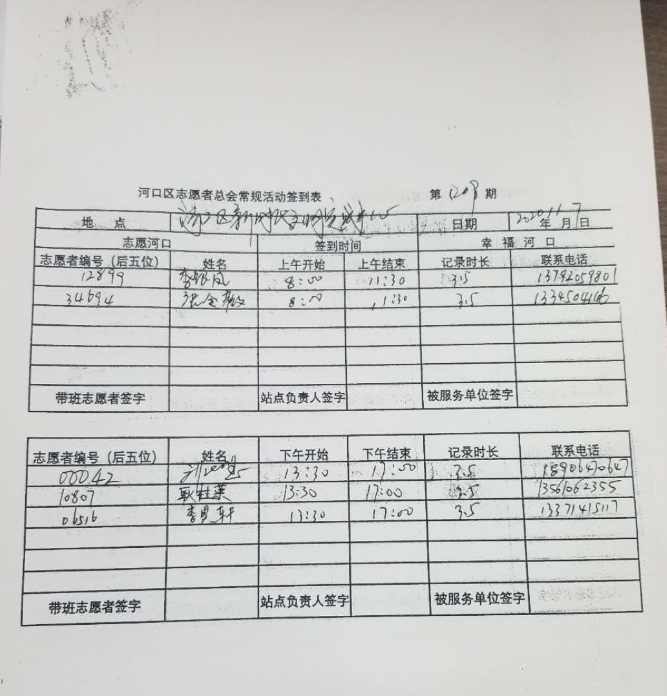 河口区志愿者总会常规活动签到表 第 期
地 点 河口区新时代文明实践中心 日期 2020年11月7日
志愿河口 签到时间 幸福河口
志愿者编号（后五位） 姓名 上午开始 上午结束 记录时长 联系电话
12899 8:00 11:30 3.5
34694 8:00 11:30 3.5
带班志愿者签字 站点负责人签字 被服务单位签字
志愿者编号（后五位） 姓名 下午开始 下午结束 记录时长 联系电话
00042 13:30 17:00 3.5
10807 耿桂英 13:30 17:00 3.5 13561062355
06516 13:30 17:00 3.5 13371415117
带班志愿者签字 站点负责人签字 被服务单位签字